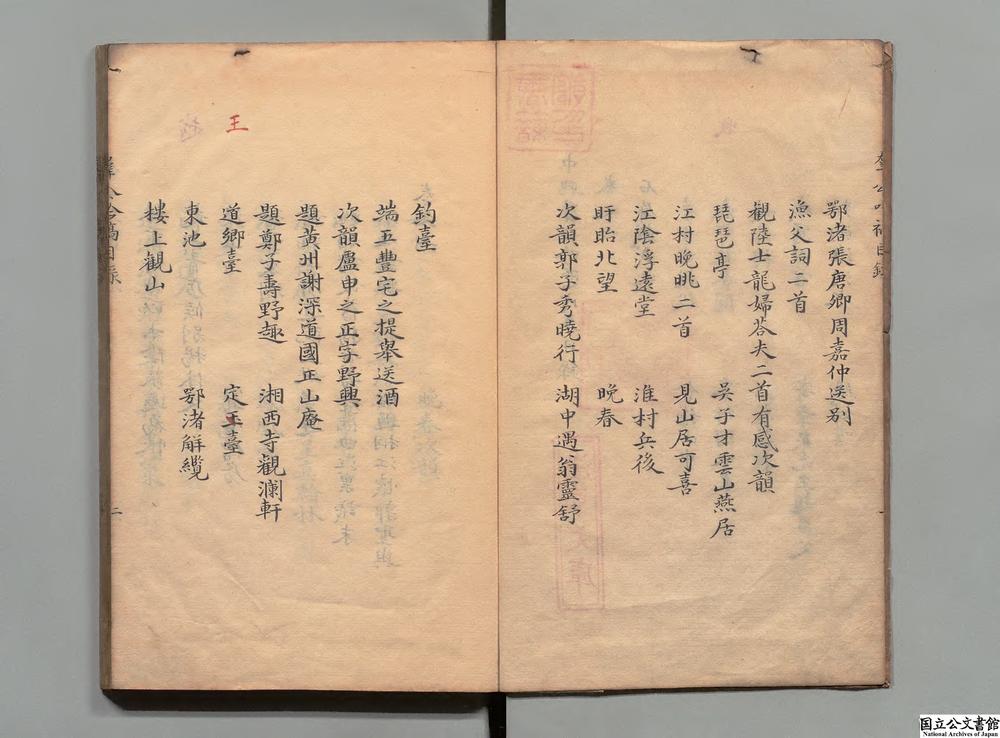 鄂渚張唐卿周嘉仲送別
漁父詞二首
觀陸士龍婦荅夫二首有感次韻
琵琶亭 吳子才雲山燕居
江村晚眺二首 見山居可喜
江陰浮遠堂 淮村兵後
盱眙北望 晚春
次韻郭子秀曉行 湖中遇翁靈舒
釣臺
端五豐宅之提舉送酒
次韻盧申之正字野興
題黃州謝深道國正山庵
題鄭子壽野趣 湘西寺觀瀾軒
王
道鄉臺 定王臺
東池 鄂渚解纜
樓上觀山
二
国立公文書館
National Archives of Japan